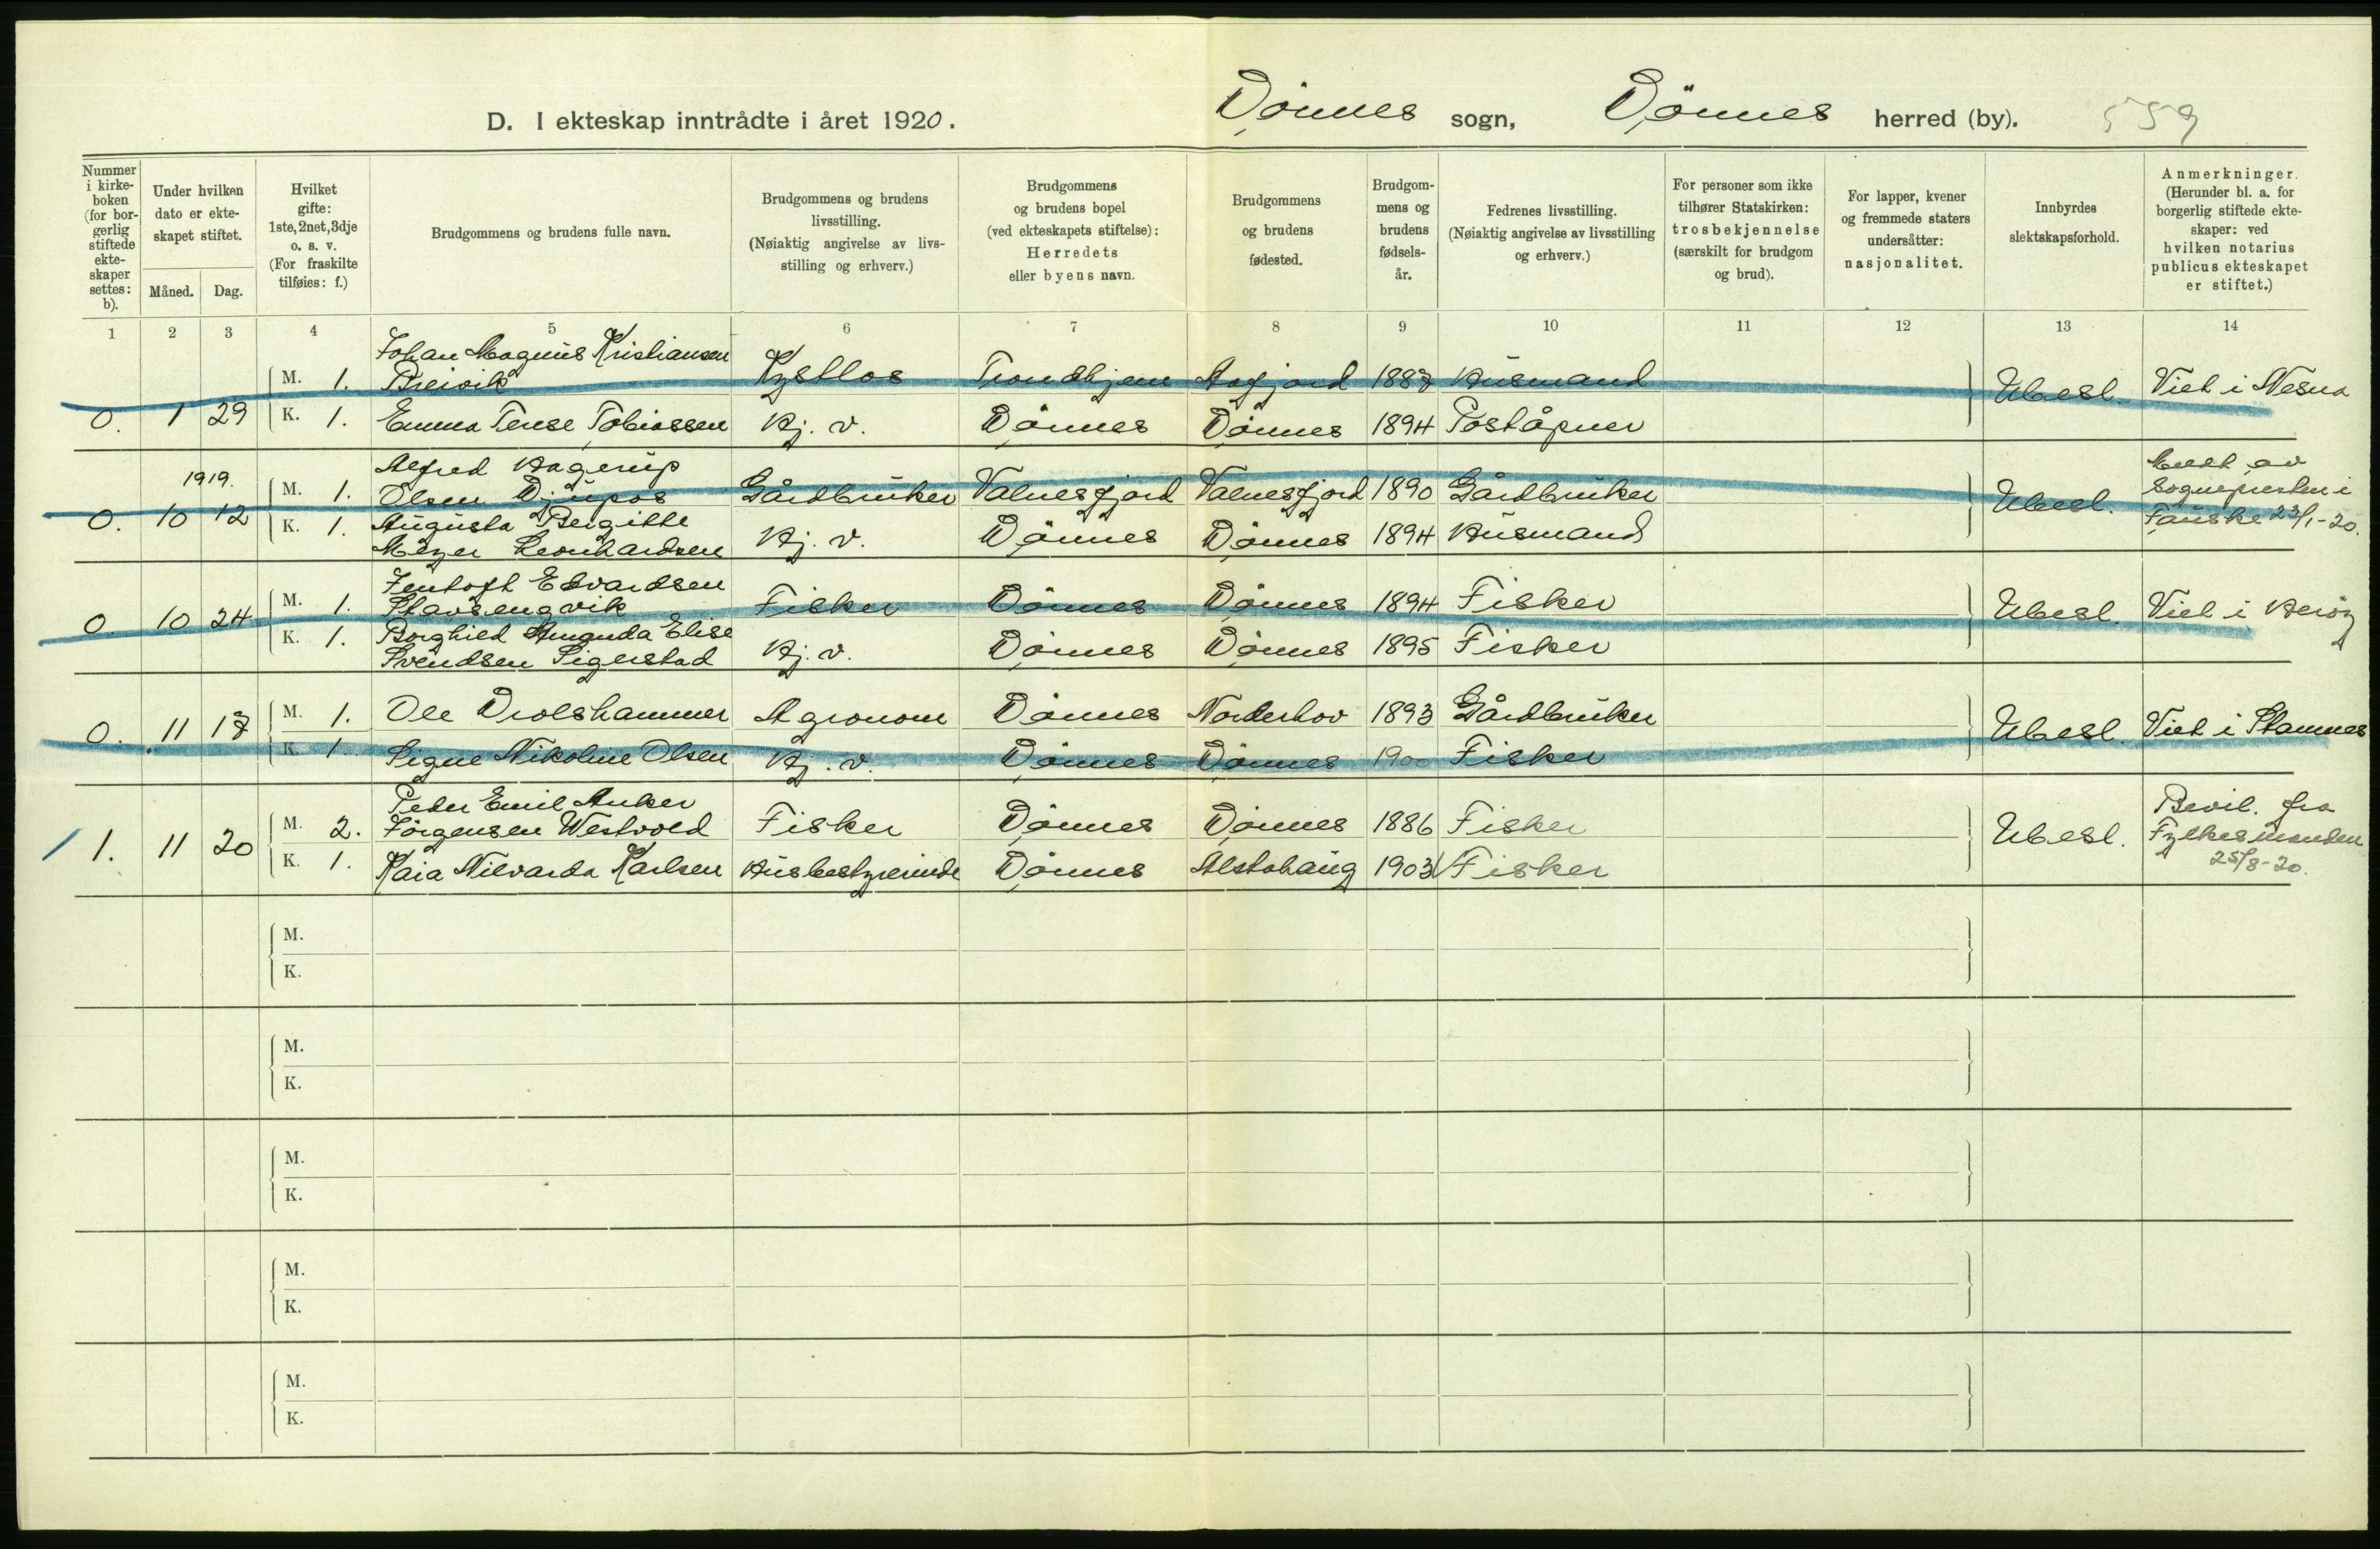 D. I ekteskap inntrådte i året 1920.
Dönnes sogn, Dönnes herred (by). 559
Nummer i kirke-boken (for bor-gerlig stiftede ekte-skaper settes: b).
Under hvilken dato er ekte-skapet stiftet.
Måned. Dag.
Hvilket gifte: 1ste, 2net, 3dje o. s. v. (For fraskilte tilføies: f.)
Brudgommens og brudens fulle navn.
Brudgommens og brudens livsstilling. (Nøiaktig angivelse av livs-stilling og erhverv.)
Brudgommens og brudens bopel (ved ekteskapets stiftelse): Herredets eller byens navn.
Brudgommens og brudens fødested.
Brudgom-mens og brudens fødsels-år.
Fedrenes livsstilling. (Nøiaktig angivelse av livsstilling og erhverv.)
For personer som ikke tilhører Statskirken: trosbekjennelse (særskilt for brudgom og brud).
For lapper, kvener og fremmede staters undersåtter: nasjonalitet.
Innbyrdes slektskapsforhold.
Anmerkninger. (Herunder bl. a. for borgerlig stiftede ekte-skaper: ved hvilken notarius publicus ekteskapet er stiftet.)
1 2 3 4 5 6 7 8 9 10 11 12 13 14
Johan Magnus Kristiansen
M. 1. Breivik Kystlos Trondhjem Aafjord 1887 Husmand Ubesl. Viet i Nesna
0. 1 29 K. 1. Emma Terese Tobiassen Hj. v. Dönnes Dönnes 1894 Poståpner
1919. Alfred Hagerup Meldt av
M. 1. Olsen Djupos Gårdbruker Valnesfjord Valnesfjord 1890 Gårdbruker Ubesl. Sognepresten i
0. 10 12 K. 1. Augusta Bergitte Fauske 23/1-20.
Meyer Leonhardsen Hj. v. Dönnes Dönnes 1894 Husmand
Jentoft Edvardsen
M. 1. Stavsengvik Fisker Dönnes Dönnes 1894 Fisker
0. 10 24 Ubesl. Viet i Heröy
K. 1. Borghild Amanda Elise
Svendsen Sigerstad Hj. v. Dönnes Dönnes 1895 Fisker
M. 1. Ole Drolshammer Agronom Dönnes Norderhov 1893 Gårdbruker
0. 11 17 Ubesl. Viet i Stamnes
K. 1. Signe Nikoline Olsen Hj. v. Dönnes Dönnes 1900 Fisker
Peder Emil Anker Bevil. fra
M. 2. Jörgensen Westvold Fisker Dönnes Dönnes 1886 Fisker
1. 11 20 Ubesl. Fylkesmanden
K. 1. Kaia Nilvarda Karlsen Husbestyrerinde Dönnes Alstahaug 1903 Fisker 25/8-20.
M.
K.
M.
K.
M.
K.
M.
K.
M.
K.